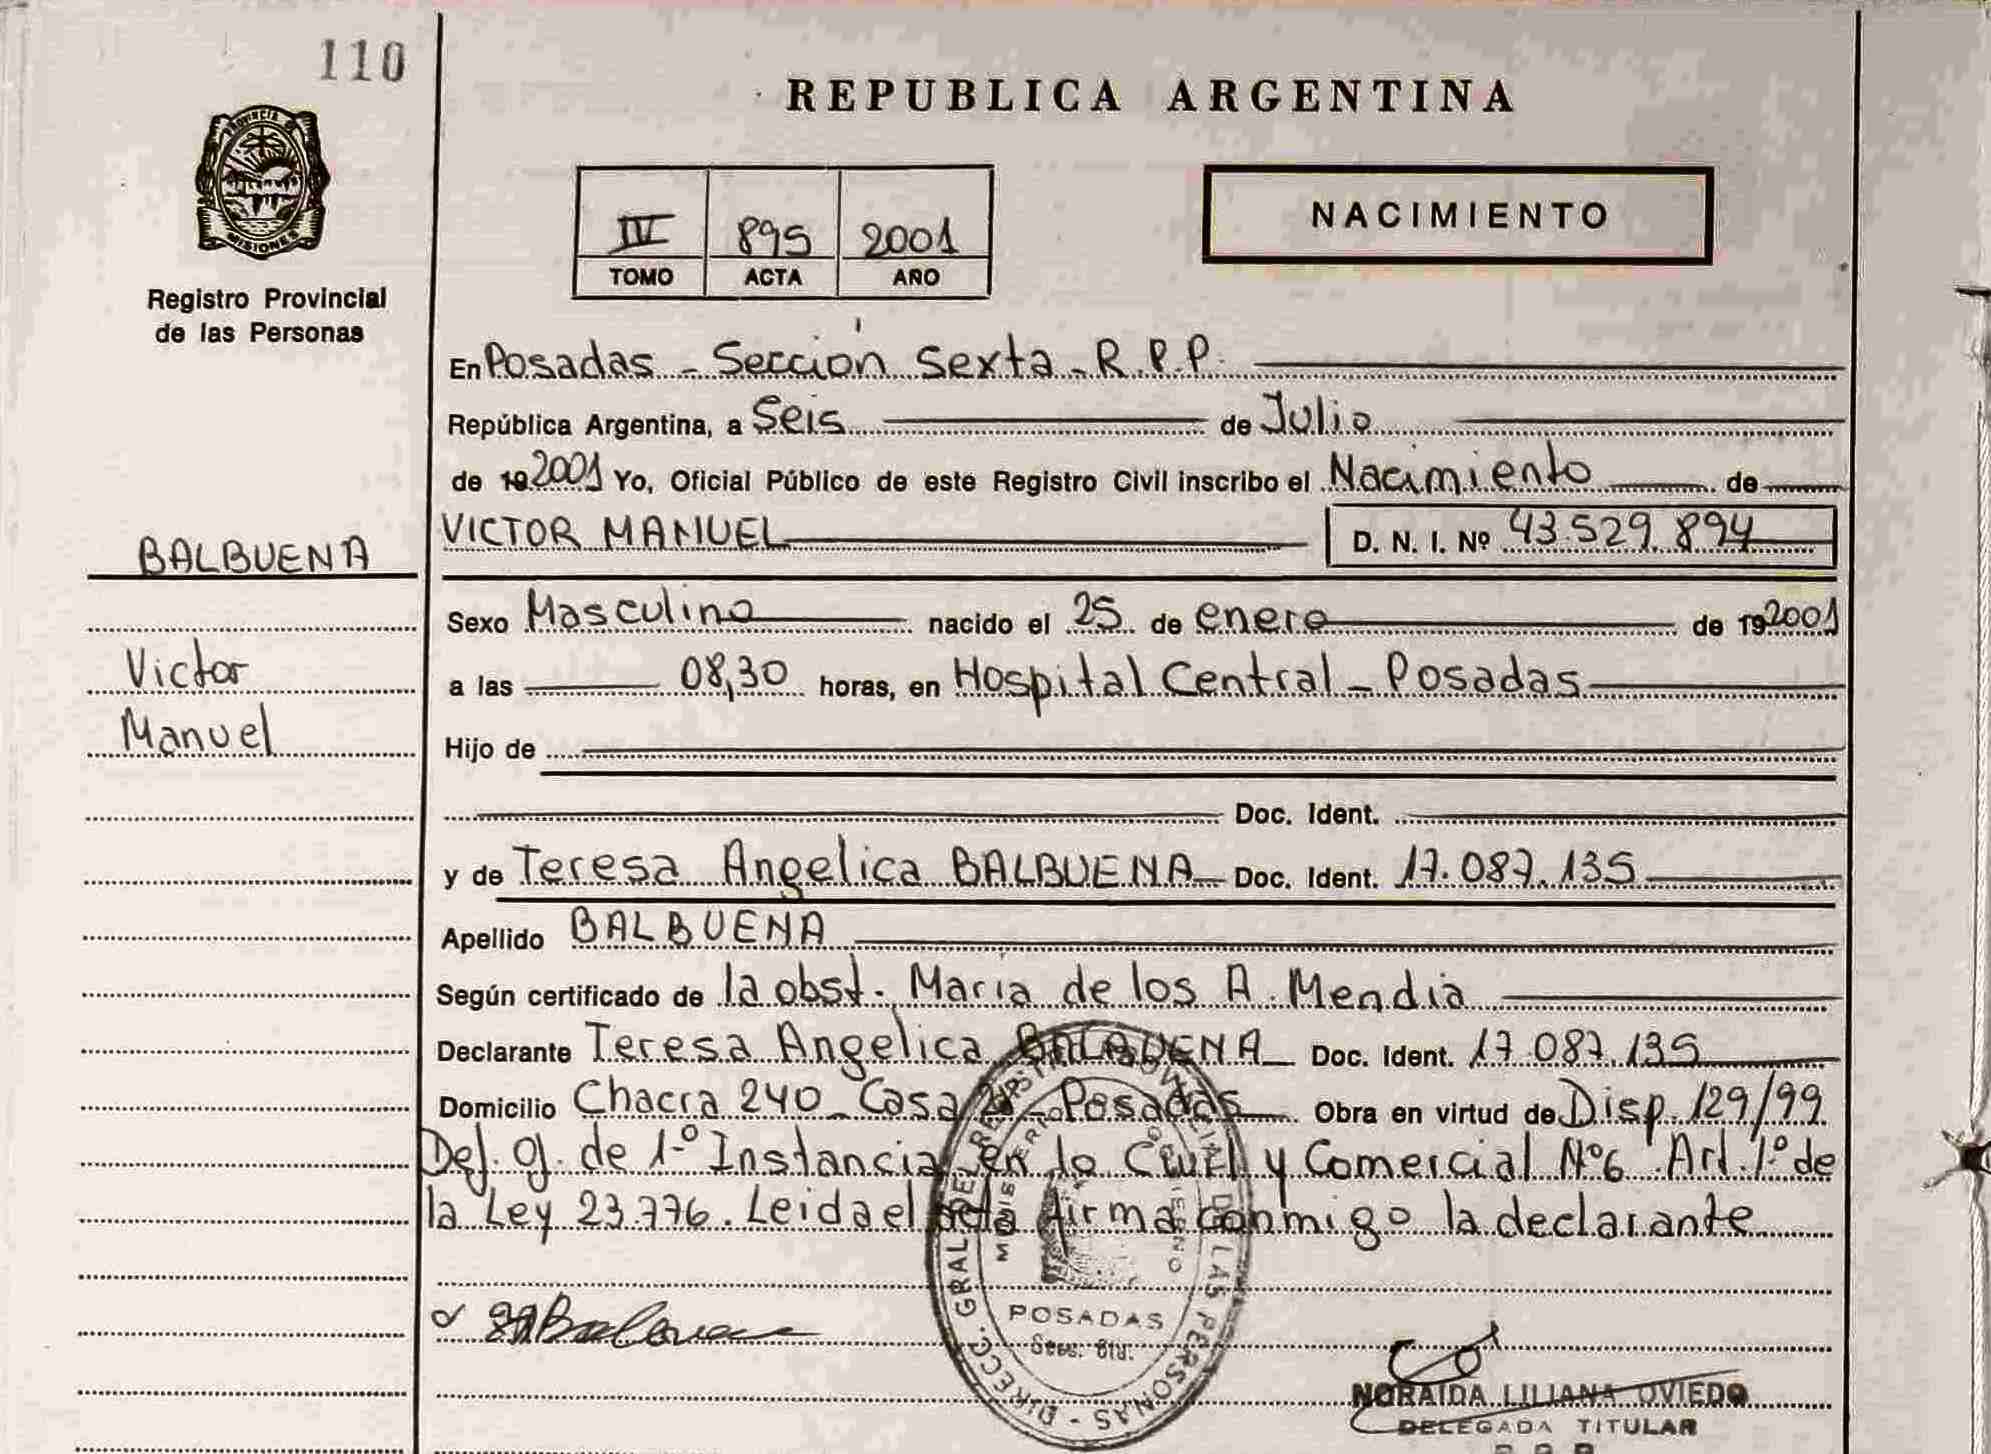 110
REPUBLICA ARGENTINA
PROVINCIA DE
MISIONES
Registro Provincial
de las Personas
NACIMIENTO
IV 895 2001
TOMO ACTA AÑO
En Posadas - Sección Sexta - R.P.P.
República Argentina, a Seis de Julio
de 19 2001 Yo, Oficial Público de este Registro Civil inscribo el Nacimiento de
BALBUENA
VICTOR MANUEL D. N. I. Nº 43.529.894
Sexo Masculino nacido el 25 de enero de 19 2001
Victor
a las 08,30 horas, en Hospital Central - Posadas
Manuel
Hijo de
Doc. Ident.
y de Teresa Angelica BALBUENA Doc. Ident. 17.087.135
Apellido BALBUENA
Según certificado de la obst. María de los A. Mendia
Declarante Teresa Angelica BALBUENA Doc. Ident. 17.087.135
Domicilio Chacra 240 - Casa - Posadas Obra en virtud de Disp. 129/99
de 1º Instancia en lo Civil y Comercial Nº6 Art. 1º de
la Ley 23.776. Leida el acta firma conmigo la declarante
POSADAS
NORAIDA LILIANA OVIEDO
DELEGADA TITULAR